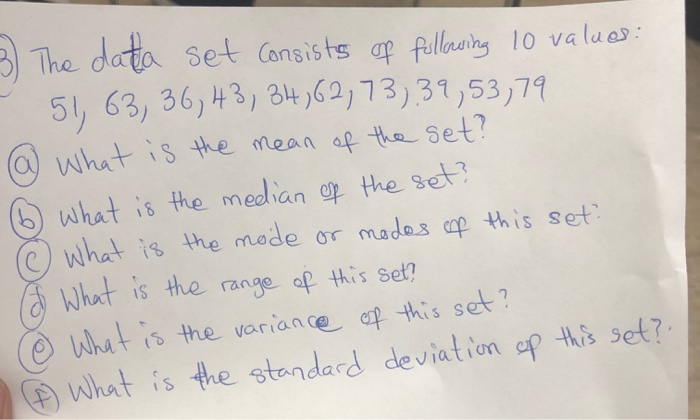 3) The data set consists of following 10 values:
51, 63, 36, 43, 34, 62, 73, 39, 53, 79
(a) What is the mean of the set?
(b) What is the median of the set?
(c) What is the mode or modes of this set?
(d) What is the range of this set?
(e) What is the variance of this set?
(f) What is the standard deviation of this set?